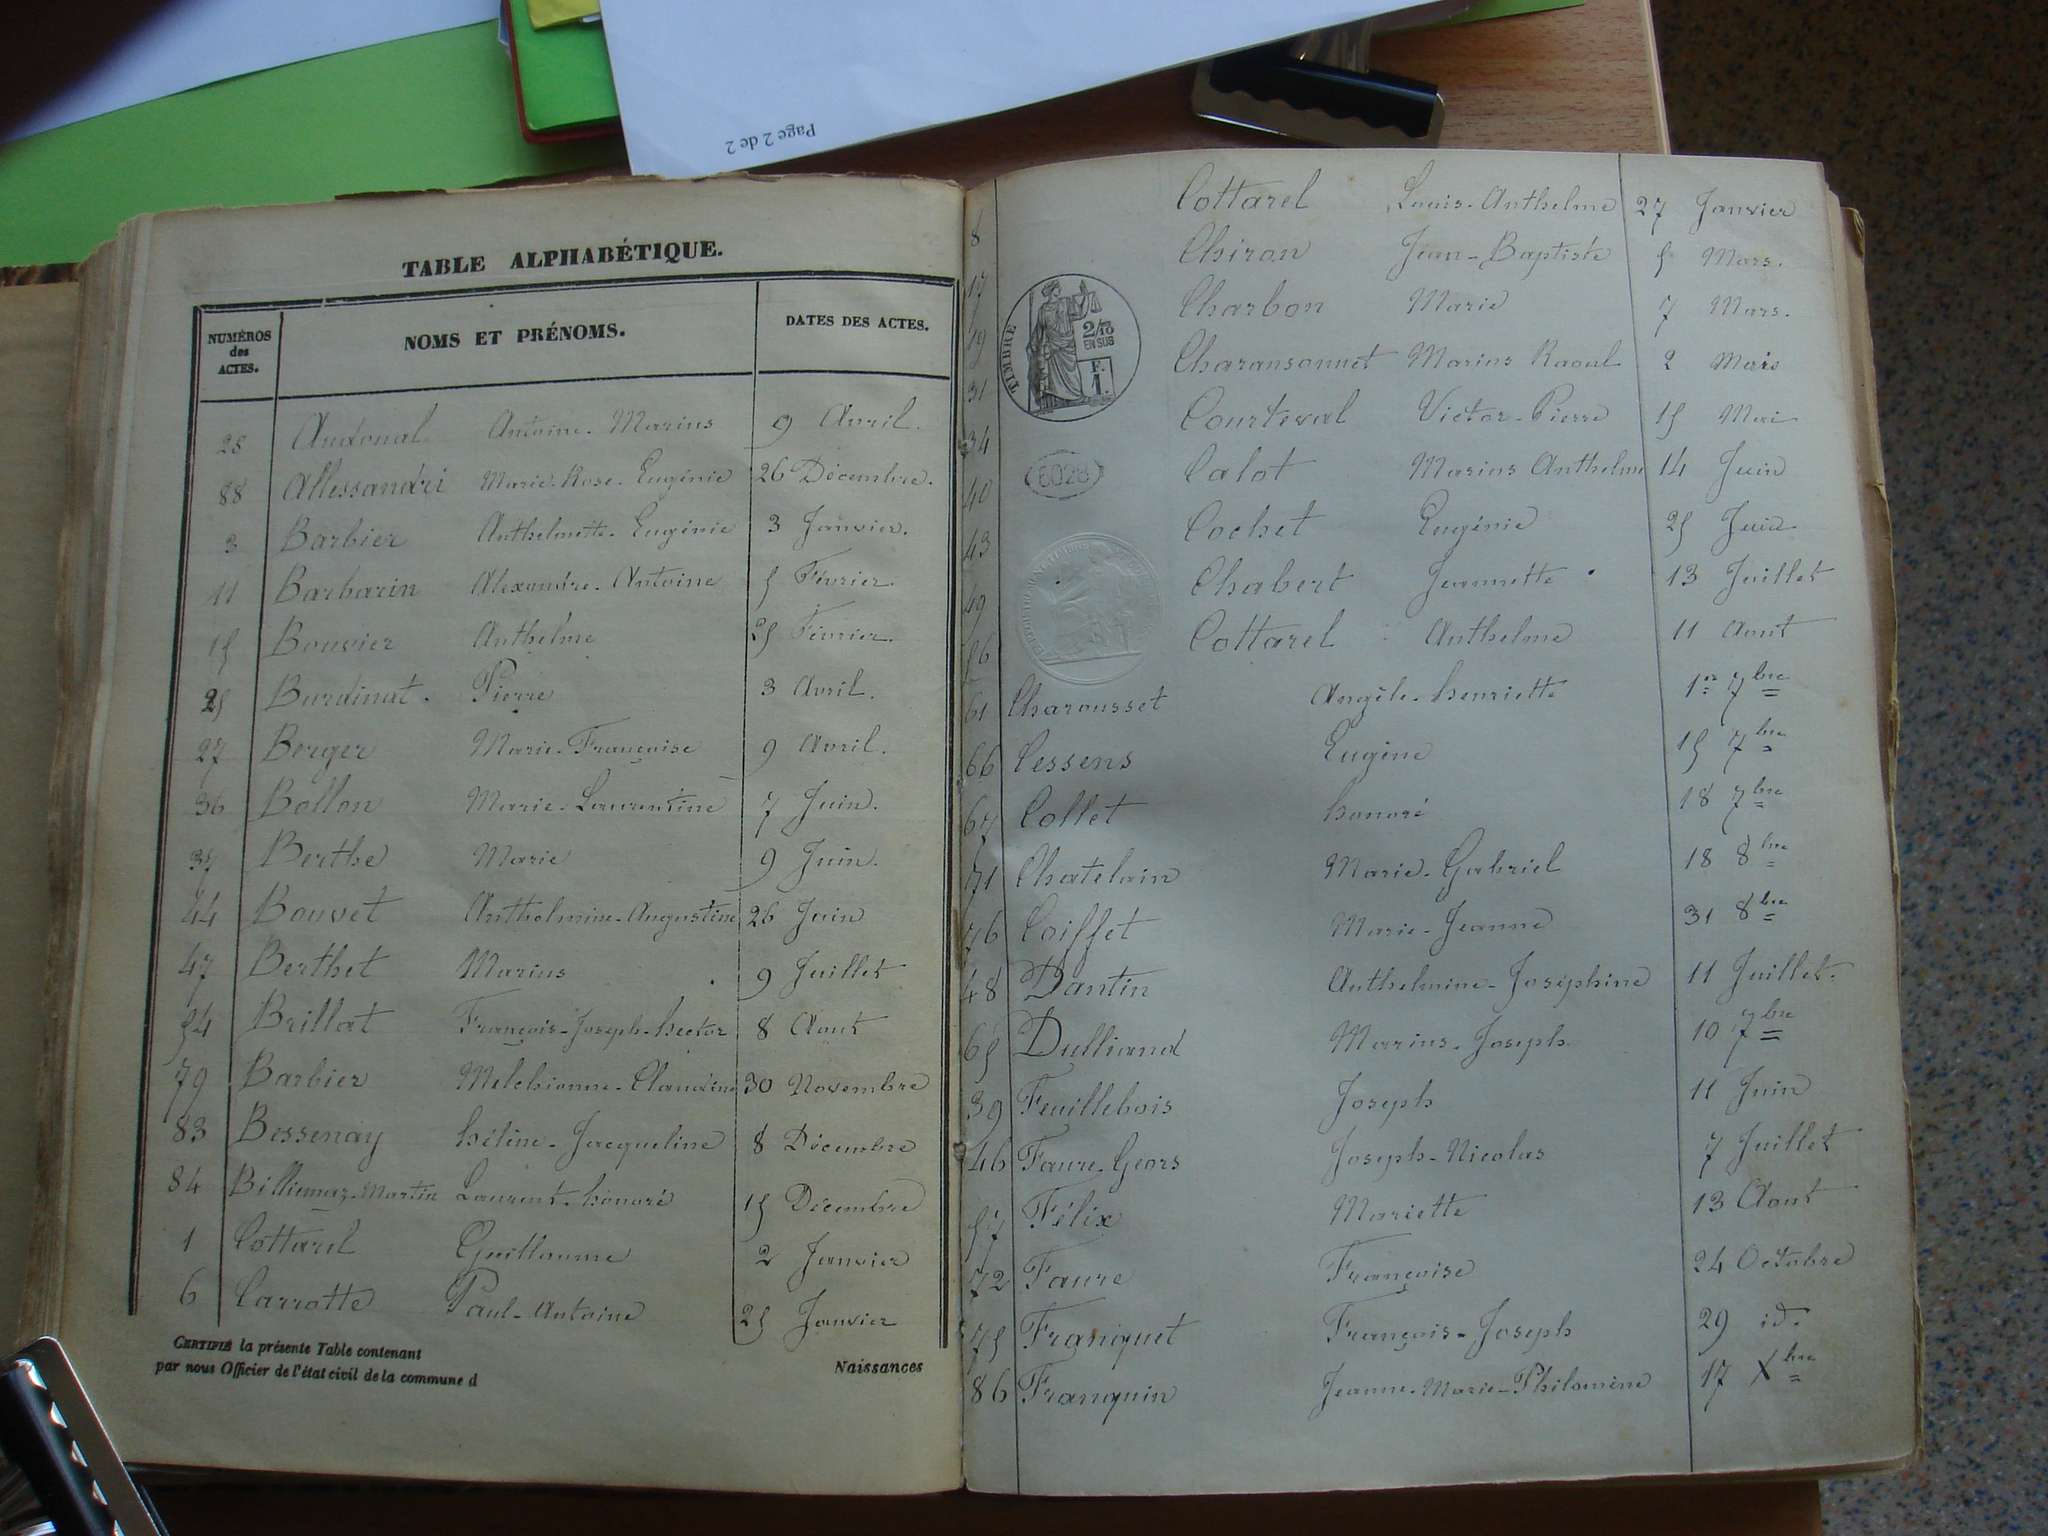 Page 2 de 2
TABLE ALPHABÉTIQUE.
NUMÉROS des ACTES. NOMS ET PRÉNOMS. DATES DES ACTES.
28 Andonal Antoine-Marius 9 Avril.
88 Allessandri Marie-Rose-Eugénie 26 Décembre.
3 Barbier Anthelmette-Eugénie 3 Janvier.
11 Barbarin Alexandre-Antoine 5 Février.
15 Bouvier Anthelme 25 Février.
25 Burdinat. Pierre 3 Avril.
27 Berger Marie-Françoise 9 Avril.
36 Bollon Marie-Laurentine 7 Juin.
37 Berthe Marie 9 Juin.
44 Bouvet Anthelmine-Augustine 26 Juin
47 Berthet Marius 9 Juillet
54 Brillat François-Joseph-hector 8 Aout
79 Barbier Melchionne-Claudine 30 Novembre
83 Bessenay hélène-Jacqueline 8 Décembre
84 Billiemaz-Martin Laurent-honoré 15 Décembre
1 Cottarel Guillaume 2 Janvier
6 Carrotte Paul-Antoine 25 Janvier
CERTIFIÉ la présente Table contenant
par nous Officier de l'état civil de la commune d
Naissances
8 Cottarel Louis-Anthelme 27 Janvier
17 Chiron Jean-Baptiste 5 Mars.
19 Charbon Marie 7 Mars.
31 Charansonnet Marius Raoul 2 Mai
34 Courteval Victor-Pierre 15 Mai
40 Calot Marius Anthelme 14 Juin
43 Cochet Eugénie 25 Juin
49 Chabert Jeannette 13 Juillet
56 Cottarel Anthelme 11 Aout
61 Charousset Angèle-henriette 1er 7bre
66 Cessens Eugène 15 7bre
67 Collet honoré 18 7bre
71 Chatelain Marie-Gabriel 18 8bre
76 Coiffet Marie-Jeanne 31 8bre
48 Dantin Anthelmine-Joséphine 11 Juillet.
65 Dulliand Marius-Joseph 10 7bre
39 Feuillebois Joseph 11 Juin
46 Faure-Geors Joseph-Nicolas 7 Juillet
57 Félix Mariette 13 Aout
72 Faure Françoise 24 Octobre
75 Franquet François-Joseph 29 id.
86 Franquin Jeanne-Marie-Philomène 17 Xbre
TIMBRE
2/10
EN SUS
F.
1.
6028